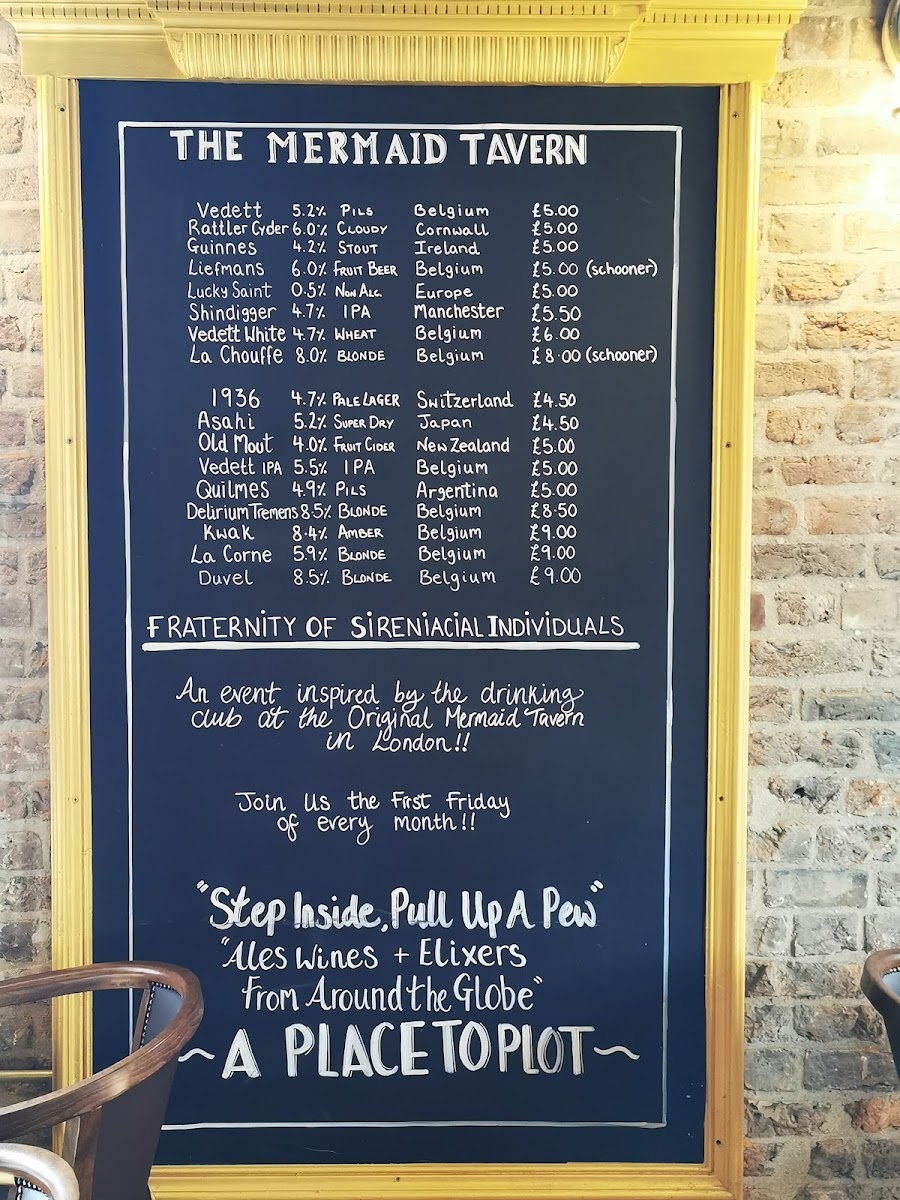 THE MERMAID TAVERN
Vedett 5.2% PILS Belgium £5.00
Rattler Cyder 6.0% CLOUDY Cornwall £5.00
Guinnes 4.2% STOUT Ireland £5.00
Liefmans 6.0% FRUIT BEER Belgium £5.00 (schooner)
Lucky Saint 0.5% NON ALC. Europe £5.00
Shindigger 4.7% IPA Manchester £5.50
Vedett White 4.7% WHEAT Belgium £6.00
La Chouffe 8.0% BLONDE Belgium £8.00 (schooner)
1936 4.7% PALE LAGER Switzerland £4.50
Asahi 5.2% SUPER DRY Japan £4.50
Old Mout 4.0% FRUIT CIDER New Zealand £5.00
Vedett IPA 5.5% IPA Belgium £5.00
Quilmes 4.9% PILS Argentina £5.00
Delirium Tremens 8.5% BLONDE Belgium £8.50
Kwak 8.4% AMBER Belgium £9.00
La Corne 5.9% BLONDE Belgium £9.00
Duvel 8.5% BLONDE Belgium £9.00
FRATERNITY OF SIRENIACIAL INDIVIDUALS
An event inspired by the drinking
club at the Original Mermaid Tavern
in London!!
Join Us the First Friday
of every month!!
"Step Inside, Pull Up A Pew"
"Ales Wines + Elixers
From Around the Globe"
~A PLACE TO PLOT~